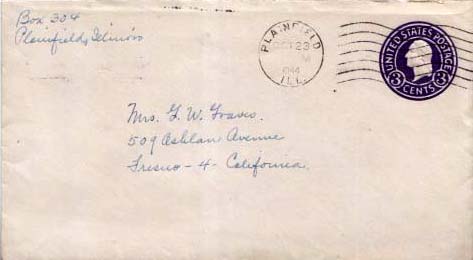 Box 304
Plainfield, Illinois
PLAINFIELD
OCT 23
M
1944
ILL.
UNITED STATES POSTAGE
3 CENTS 3
Mrs. G. W. Graves.
509 Ashlan Avenue
Fresno - 4 - California